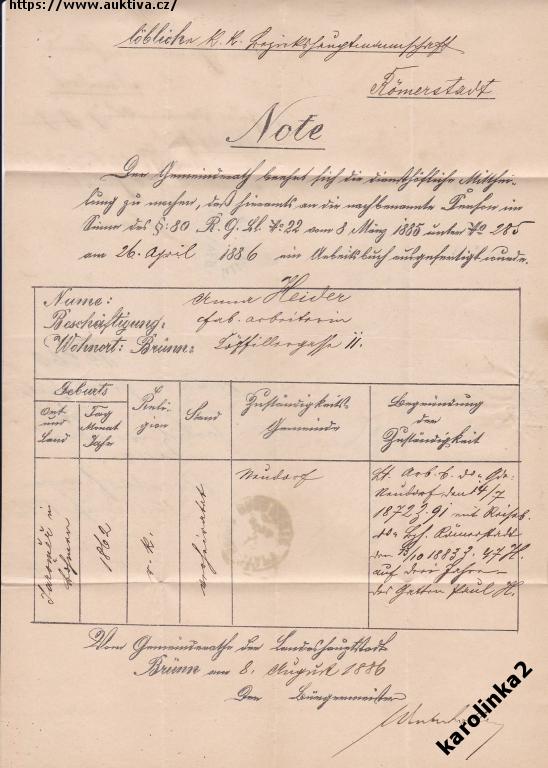 https://www.auktiva.cz/
löbliche k. k. Bezirkshauptmannschaft
Römerstadt
Note
Der Gemeinderath beehrt sich die diensthöfliche Mitthei-
lung zu machen, daß hieramts an die nachbenannte Person im
Sinne des §: 80 R. G. Bl. No: 22 vom 8 März 1885 unter No 285
am 26. April 1886 ein Arbeitsbuch ausgefertigt wurde.
Name: Anna Heider
Beschäftigung: Fab. arbeiterin
Wohnort: Brünn: 11.
Geburts
Ort und Land
Tag Monat Jahr
Religion
Stand
Zuständigkeits-
Gemeinde
Begründung
der
Zuständigkeit
Jaroměř in Böhmen
1862
r. k.
verheiratet
Neudorf
Lt. Arb. b. der Gde.
Neudorf den 14/7
1872 Z. 91 mit
Römerstadt
1883 Z. 47
auf drei Jahre
des Gatten Paul H.
Vom Gemeinderathe der Landeshauptstadt
Brünn am 8. August 1886
Der Bürgermeister
karolinka2